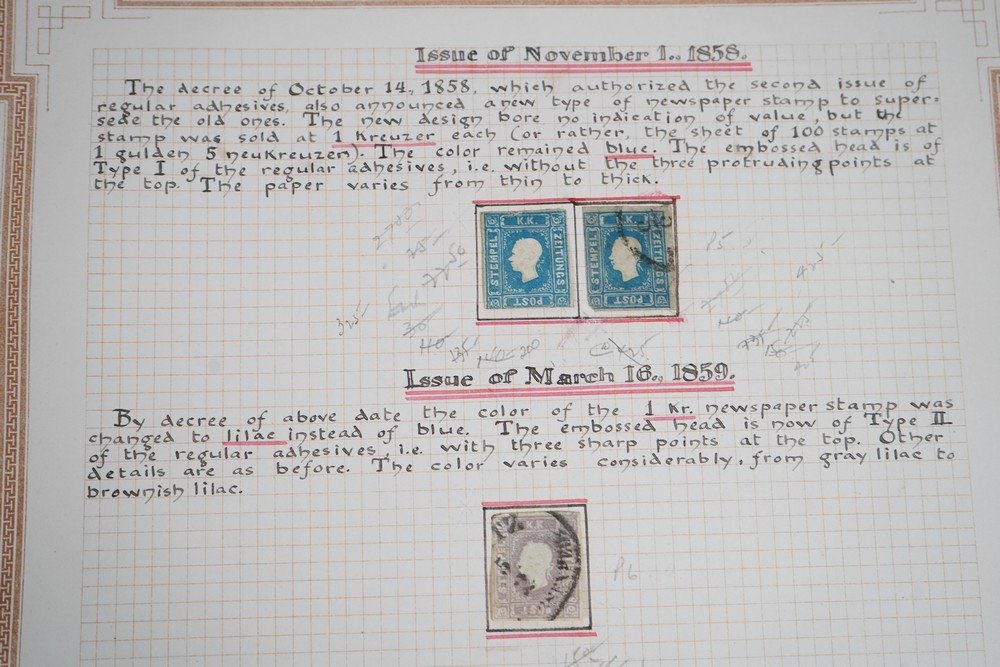 Issue of November 1., 1858.
The decree of October 14., 1858, which authorized the second issue of
regular adhesives, also announced a new type of newspaper stamp to super-
sede the old ones. The new design bore no indication of value, but the
stamp was sold at 1 Kreuzer each (or rather, the sheet of 100 stamps at
1 gulden 5 neukreuzen). The color remained blue. The embossed head is of
Type I of the regular adhesives, i.e. without the three protruding points at
the top. The paper varies from thin to thick.
K.K. ZEITUNGS POST STEMPEL
K.K. ZEITUNGS POST STEMPEL
325
425
Issue of March 16., 1859.
By decree of above date the color of the 1 Kr. newspaper stamp was
changed to lilac instead of blue. The embossed head is now of Type II
of the regular adhesives, i.e. with three sharp points at the top. Other
details are as before. The color varies considerably, from gray lilac to
brownish lilac.
K.K. POST
P6